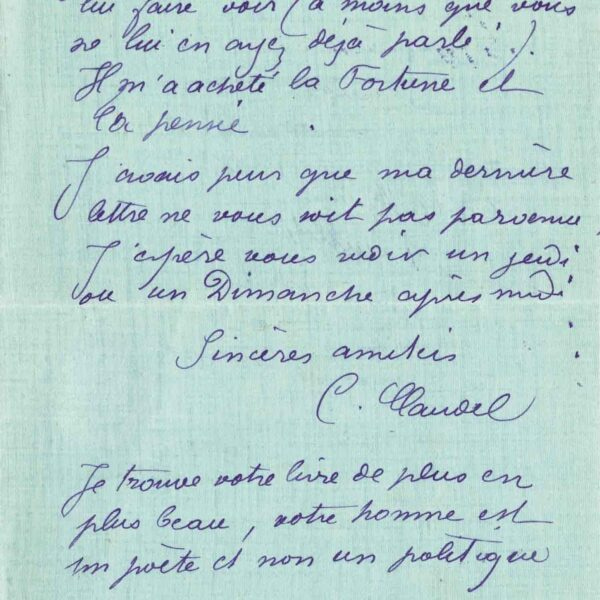 lui faire voir (à moins que vous
ne lui en ayez déjà parlé).
Il m'a acheté la Fortune et
la pensée.
J'avais peur que ma dernière
lettre ne vous soit pas parvenue,
J'espère vous revoir un jeudi
ou un Dimanche après midi.
Sincères amitiés
C. Claudel
Je trouve votre livre de plus en
plus beau, votre homme est
un poète et non un politique